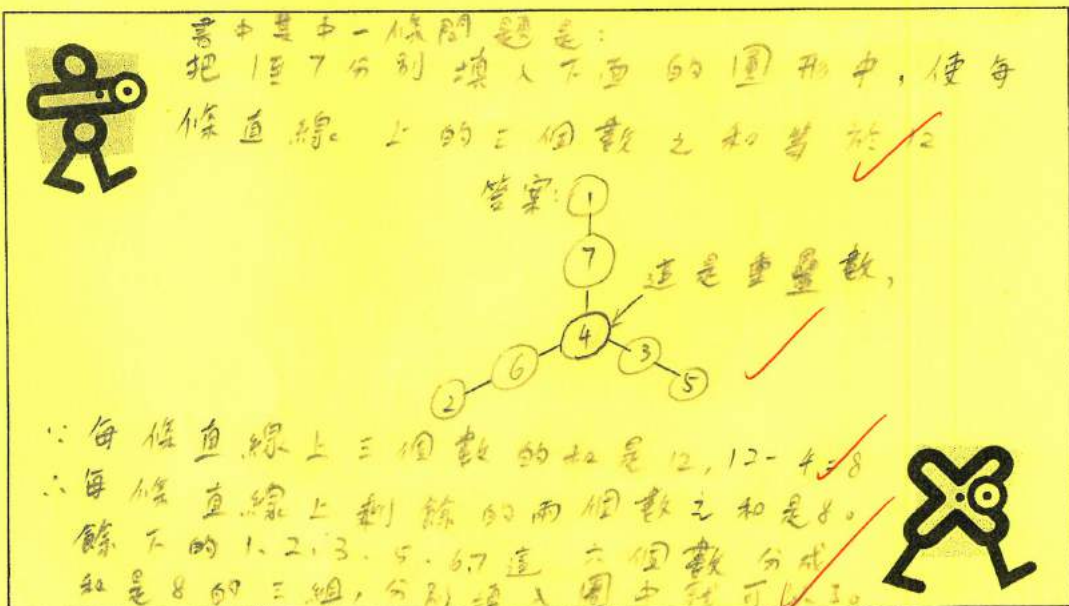 書中其中一條問題是:
把1至7分別填入下面的圖形中,使每
條直線上的三個數之和等於12
答案:
1
7
這是重疊數,
4
6
3
2
5
∵每條直線上三個數的和是12,12-4=8
∴每條直線上剩餘的兩個數之和是8。
餘下的1、2、3、5、6、7這六個數分成
和是8的三組,分別填入圈中就可以了。